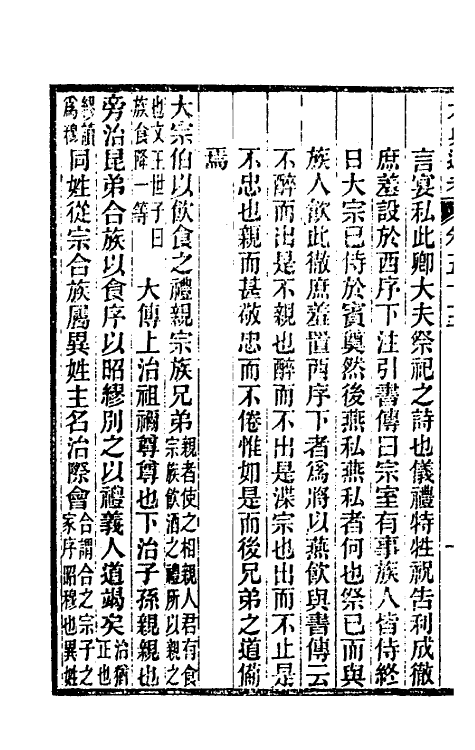 言宴私此卿大夫祭祀之詩也儀禮特牲祝告利成徹
庶羞設於西序下注引書傳曰宗室有事族人皆侍終
日大宗已侍於賓奠然後燕私燕私者何也祭已而與
族人飲此徹庶羞置西序下者為將以燕飲與書傳云
不醉而出是不親也醉而不出是渫宗也出而不止是
不忠也親而甚敬忠而不倦惟如是而後兄弟之道備
焉
大宗伯以飲食之禮親宗族兄弟親者使之相親人君有食宗族飲酒之禮所以親之
也文王世子曰族食降一等　大傳上治祖禰尊尊也下治子孫親親也
旁治昆弟合族以食序以昭繆別之以禮義人道竭矣治猶正也
繆讀為穆同姓從宗合族屬異姓主名治際會合謂合之宗子之家序昭穆也異姓